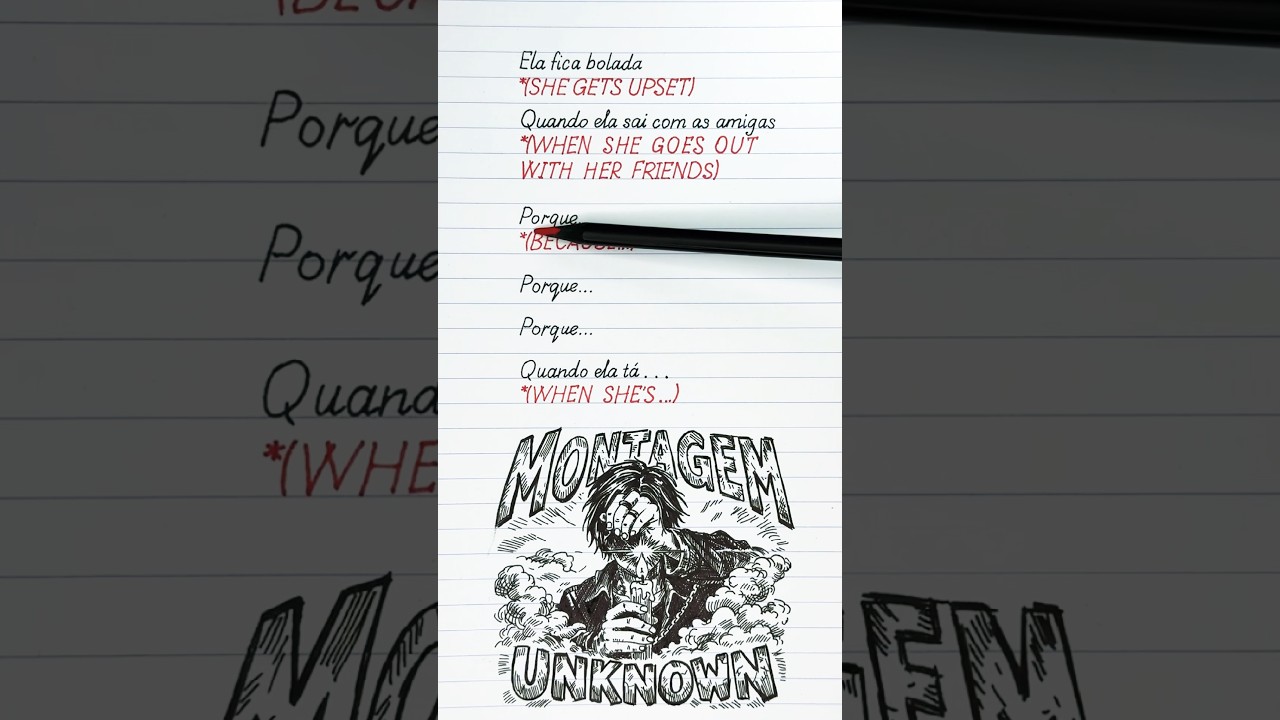 Ela fica bolada
*(SHE GETS UPSET)
Quando ela sai com as amigas
*(WHEN SHE GOES OUT
WITH HER FRIENDS)
Porque...
*(BECAUSE...)
Porque...
Porque...
Quando ela tá...
*(WHEN SHE'S...)
MONTAGEM
UNKNOWN